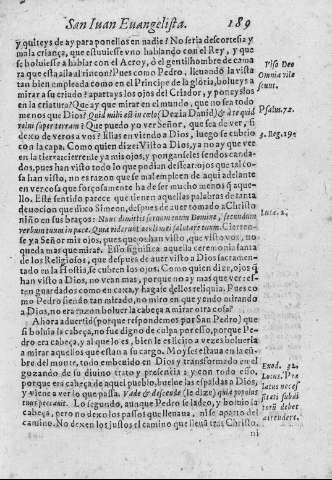 San Iuan Euangelista. 189
y quiteys de ay para ponellos en nadie? No seria descortesia y
mala criança, que estuuiesse vno hablando con el Rey, y que
se boluiesse a hablar con el Acroy, ò el gentilhombre de cama
ra que esta alla al rincon? Pues como Pedro, lleuando la vista
tan bien empleada como en el Principe de la gloria, bolueys a
mirar a su criado? apartays los ojos del Criador, y poneyslos
en la criatura? Que ay que mirar en el mundo, que no sea todo
menos que Dios? Quid mihi est in cœlo (Dezia Dauid) & à te quid
volui super terram? Que puedo yo ver Señor, que sea de ver, si
dexo de veros a vos? Elias en viendo a Dios, luego se cubrio
con la capa. Como quien dize: Visto a Dios, ya no ay que ver
en la tierra: cierrente ya mis ojos, y ponganseles sendos canda-
dos, pues han visto todo lo que podian dessear: ojos que tal co-
sa han visto, no es razon que se mal empleen de aqui adelante
en ver cosas que forçosamente ha de ser mucho menos que a-
quello. Este sentido parece que tienen aquellas palabras de tanta
deuocion que dixo Simeon, despues de auer tomado a Christo
niño en sus braços: Nunc dimittis seruum tuum Domine, secundum
verbum tuum in pace. Quia viderunt oculi mei salutare tuum. Cierren-
se ya Señor mis ojos, pues que aueis visto lo que vieron vuestros, no
queda mas que mirar. Esso significa aquella ceremonia santa
de los Religiosos, que despues de auer visto a Dios sacramen-
tado en la Hostia, se cubren los ojos. Como quien dize, ojos que
han visto a Dios, no vean mas, porque no ay mas que ver: es-
ten guardados como en caxa, y hagase dellos reliquia. Pues co-
mo Pedro siendo tan mirado, no miro en que yendo mirando
a Dios, no era razon boluer la cabeça a mirar otra cosa?
Ahora aduertid (porque respondemos por San Pedro) que
si boluio la cabeça, no fue digno de culpa por esso, porque Pe-
dro era cabeça, y al que lo es, bien le es licito a vezes boluerla
a mirar aquellos que estan a su cargo. Moyses estaua en la cũ-
bre del monte, todo embeuido en Dios y transformado en el,
gozando de su diuino trato y presencia: y con todo esso,
porque era cabeça de aquel pueblo, buelue las espaldas a Dios,
y viene a ver lo que passa. Vade & descende (le dize) quia populus
tuus peccauit. Lo segundo, aunque Pedro se ladeo, y boluio la
cabeça, pero no dexo los passos que lleuaua, ni se aparto del
camino. No dexen los justos el camino que lleua tras Christo,
ni
Viso Deo
Omnia vile
scunt.
Psalm. 72.
3. Reg. 19.
Luc. 2.
Exod. 32.
Locus. Præ
latus neces
sitati subdi
torũ debet
attendere.